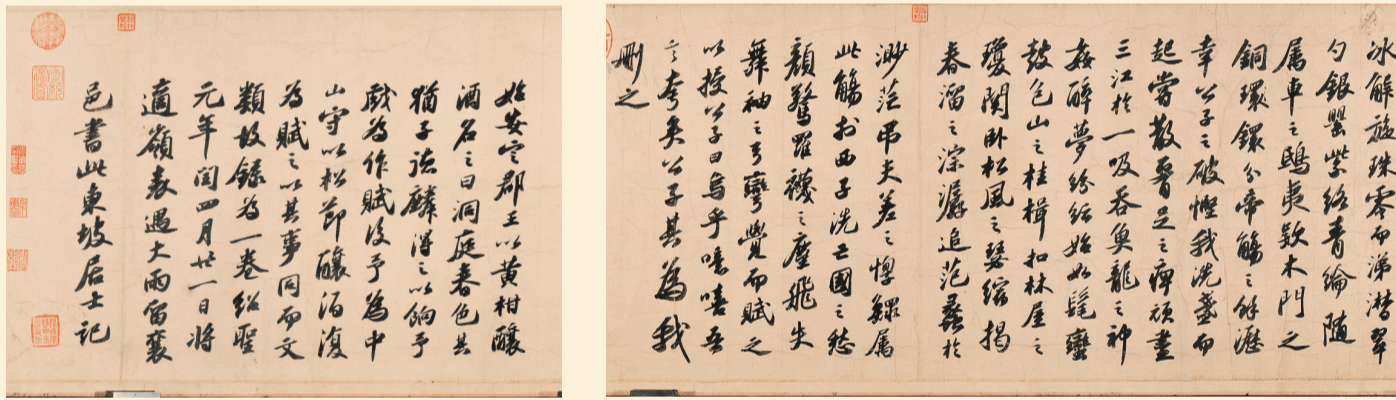 冰解放珠零而涕潸翠
勺銀罌紫絡青綸隨
属車之鴟夷欵木門之
銅環鐶分帝觴之餘瀝
幸公子之破慳我洗盞而
起嘗散腰足之痺頑盡
三江於一吸吞魚龍之神
姦醉夢紛紜始如髦蠻
鼓包山之桂楫扣林屋之
瓊關卧松風之瑟縮揭
春溜之淙潺追范蠡於
渺茫吊夫差之惸鰥属
此觴於西子洗亡國之愁
顏驚羅襪之塵飛失
舞袖之弓彎覺而賦之
以授公子曰烏乎噫嘻吾
言夸矣公子其為我
刪之
始安定郡王以黄柑釀
酒名之曰洞庭春色其
猶子德麟得之以餉予
戲為作賦後予為中
山守以松節釀酒復
為賦之以其事同而文
類故錄為一卷紹聖
元年閏四月廿一日將
適嶺表遇大雨留襄
邑書此東坡居士記